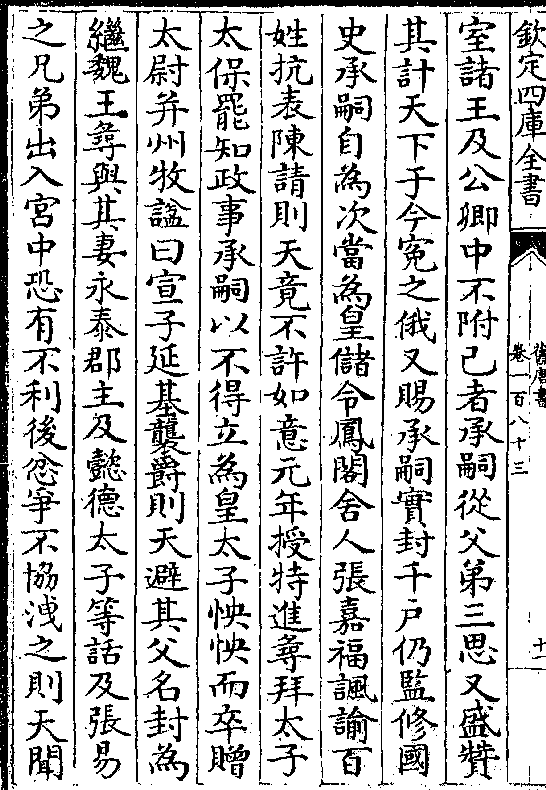 欽定四庫全書
舊唐書
卷一百八十三
十一
室諸王及公卿中不附已者承嗣從父弟三思又盛贊
其計天下于今寃之俄又賜承嗣實封千户仍監修國
史承嗣自為次當為皇儲令鳳閣舍人張嘉福諷諭百
姓抗表陳請則天竟不許如意元年授特進尋拜太子
太保罷知政事承嗣以不得立為皇太子怏怏而卒贈
太尉并州牧諡曰宣子延基襲爵則天避其父名封為
繼魏王尋與其妻永泰郡主及懿德太子等話及張易
之兄弟出入宫中恐有不利後忿爭不協洩之則天聞